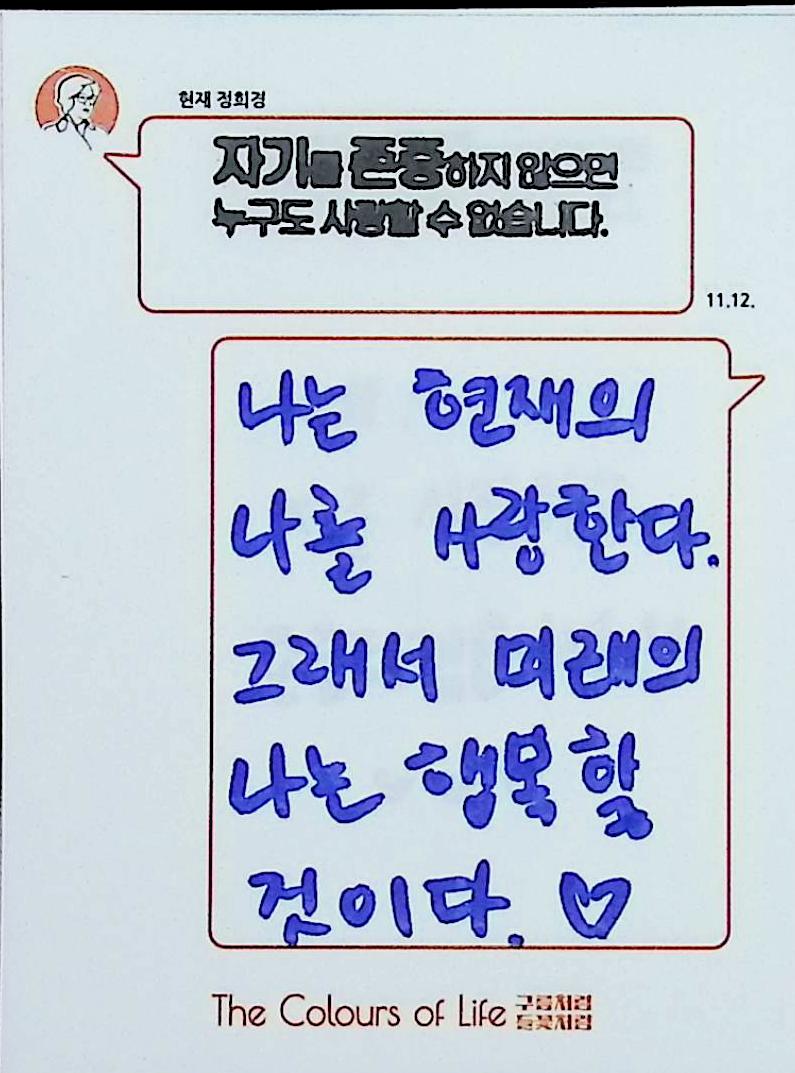 현재 정희경
자기를 존중하지 않으면
누구도 사랑할 수 없습니다.
11.12.
나는 현재의
나를 사랑한다.
그래서 미래의
나는 행복할
것이다. ♡
The Colours of Life 구름처럼
들꽃처럼